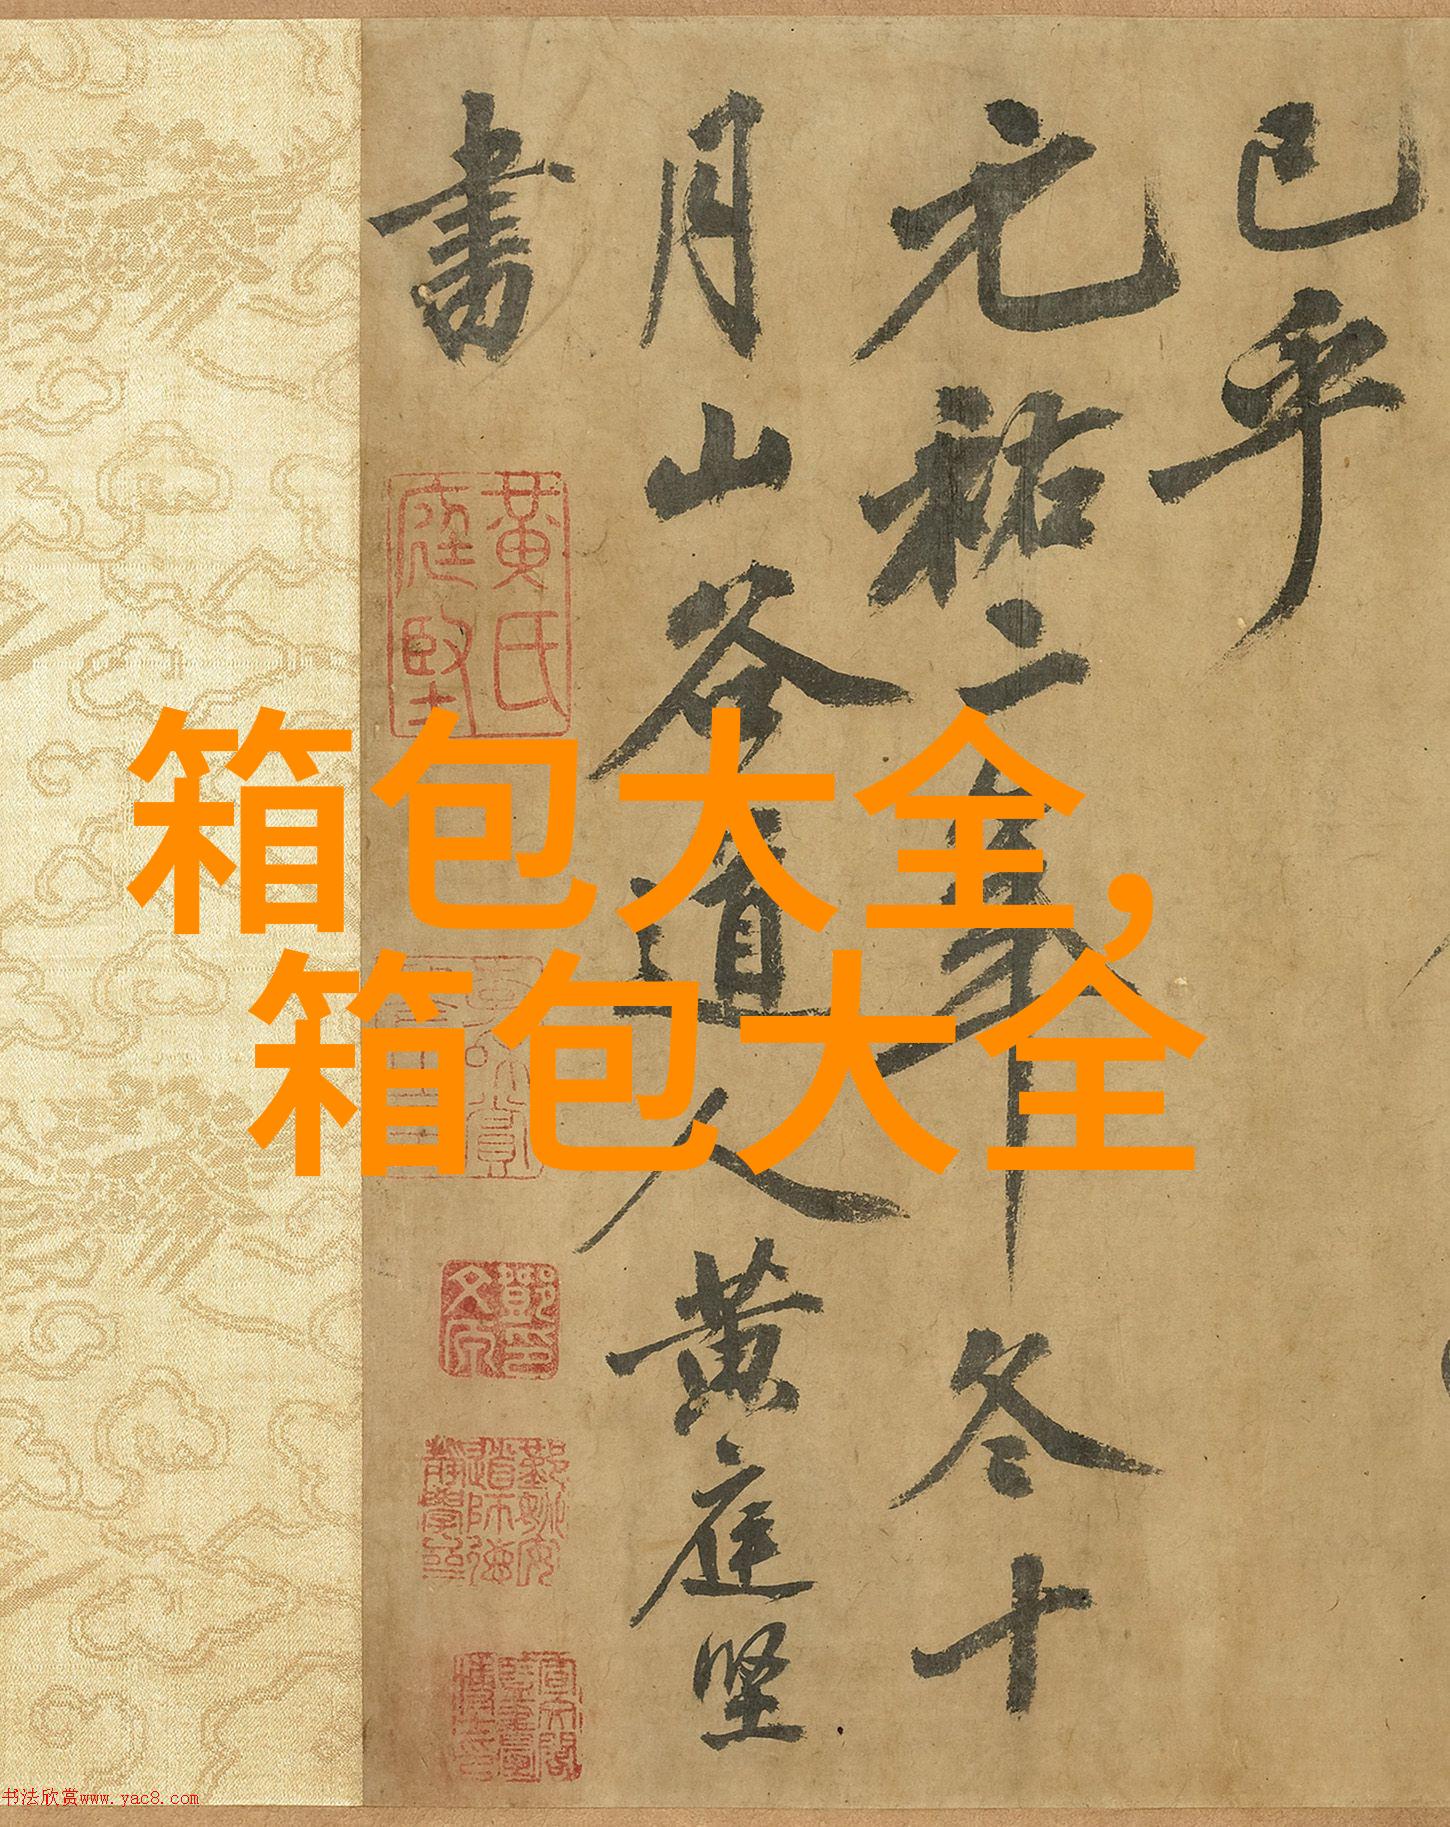 已乎
元祐二年冬十
月山谷道人黄庭坚
書
黄氏
庭堅
箱包大全,
箱包大全
书法欣赏www.yac8.com